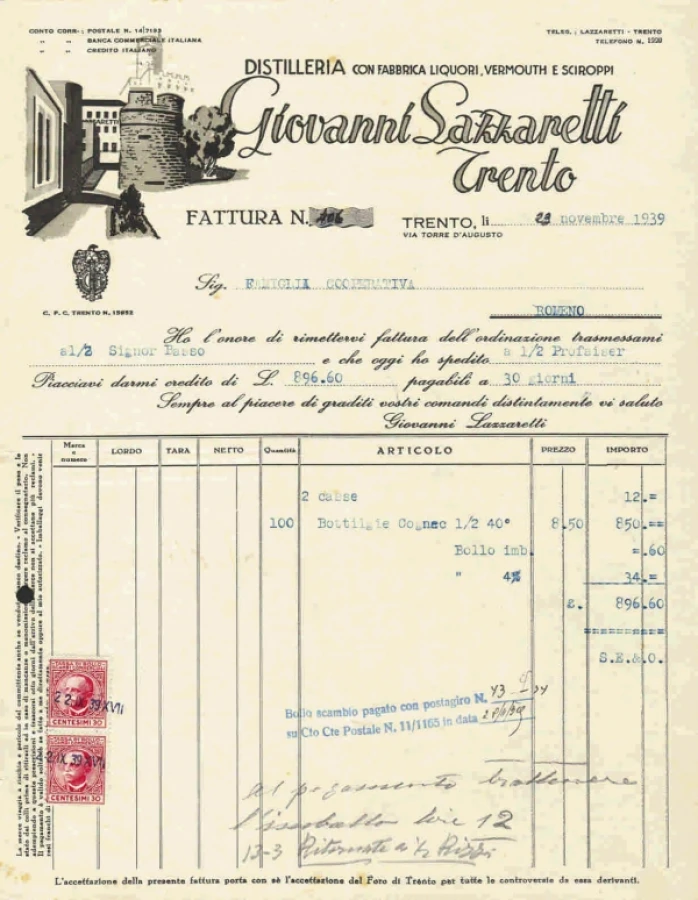 CONTO CORR.: POSTALE N. 14/7163
" " BANCA COMMERCIALE ITALIANA
" " CREDITO ITALIANO
TELEG.: LAZZARETTI - TRENTO
TELEFONO N. 1220
DISTILLERIA CON FABBRICA LIQUORI, VERMOUTH E SCIROPPI
Giovanni Lazzaretti
Trento
FATTURA N.
TRENTO, lì 23 novembre 1939
VIA TORRE D'AUGUSTO
C. P. C. TRENTO N. 15692
Sig. FAMIGLIA COOPERATIVA
ROMENO
Ho l'onore di rimettervi fattura dell'ordinazione trasmessami
a1/2 Signor Passo e che oggi ho spedito a 1/2 Profaiser
Piacciavi darmi credito di L. 896.60 pagabili a 30 giorni
Sempre al piacere di graditi vostri comandi distintamente vi saluto
Giovanni Lazzaretti
Marca e numero LORDO TARA NETTO Quantità ARTICOLO PREZZO IMPORTO
2 casse 12.=
100 Bottilgie Cognac 1/2 40° 8.50 850.==
Bollo imb. =.60
" 4% 34.=
£. 896.60
==========
S.E.&.O.
Bollo scambio pagato con postagiro N. 43
su Cto Cte Postale N. 11/1165 in data
CENTESIMI 30
CENTESIMI 30
Al pagamento trattenere
l'imballo lire 12
13-3 Ritornate
L'accettazione della presente fattura porta con sè l'accettazione del Foro di Trento per tutte le controversie da essa derivanti.